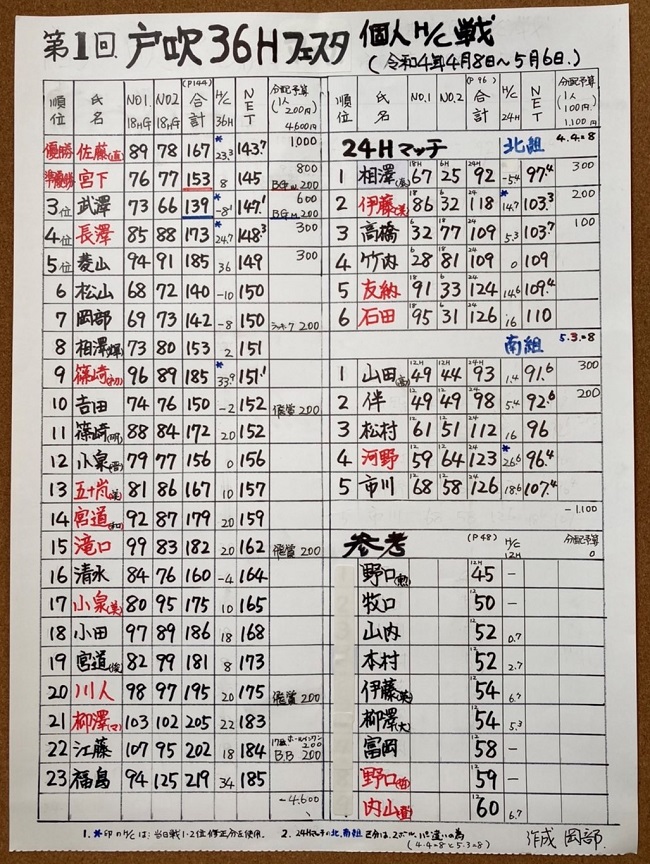 第1回 戸吹36Hフェスタ 個人H/C戦
(令和4年4月8日〜5月6日.)
順位 氏名 NO.1 18HG NO.2 18HG (P144) 合計 H/C 36H NET 分配予算 (1人 200円) 4,600円
優勝 佐藤(直) 89 78 167 *23.3 143.7 1,000
準優勝 宮下 76 77 153 8 145 800 BG 200
3位 武澤 73 66 139 *-8.1 147.1 600 BGM 200
4位 長澤 85 88 173 *24.7 148.3 300
5位 菱山 94 91 185 36 149 300
6 松山 68 72 140 -10 150
7 岡部 69 73 142 -8 150 200
8 相澤(輝) 73 80 153 2 151
9 篠崎(初) 96 89 185 *33.9 151.1
10 吉田 74 76 150 -2 152 飛賞 200
11 篠崎(明) 88 84 172 20 152
12 小泉 79 77 156 0 156
13 五十嵐 81 86 167 10 157
14 宮道(和) 92 87 179 20 159
15 滝口 99 83 182 20 162 飛賞 200
16 清水 84 76 160 -4 164
17 小泉(美) 80 95 175 10 165
18 小田 97 89 186 18 168
19 宮道(俊) 82 99 181 8 173
20 川人 98 97 195 20 175 飛賞 200
21 柳澤(マ) 103 102 205 22 183
22 江藤 107 95 202 18 184 ホールインワン 200 B.B 200
23 福島 94 125 219 34 185
-4,600
順位 氏名 NO.1 NO.2 (P96) 合計 H/C 24H NET 分配予算 (1人 100円) 1,100円
24Hマッチ 北組 4.4.=8
1 相澤 18H 67 6H 25 24H 92 -5.4 97.4 300
2 伊藤(美) 86 32 118 *14.7 103.3 200
3 高橋 32 77 109 5.3 103.7 100
4 竹内 28 81 109 0 109
5 友納 91 33 124 14.6 109.4
6 石田 95 31 126 16 110
南組 5.3.=8
1 山田(高) 12H 49 12H 44 24H 93 1.4 91.6 300
2 伴 49 49 98 5.4 92.6 200
3 松村 61 51 112 16 96
4 河野 59 64 123 *26.6 96.4
5 市川 68 58 126 18.6 107.4
-1,100
参考 (P48) H/C 12H 分配予算 0
野口 12H 45 -
牧口 50 -
山内 52 0.7
本村 52 2.7
伊藤(英) 54 6.7
柳澤(大) 54 5.3
富岡 58 -
野口 59 -
内山 60 6.7
1. *印のH/Cは、当日戦1・2位修正分を使用. 2. 24Hマッチの北、南組区分は、2ホール いと違いの為
(4.4=8と5.3=8)
作成 岡部.